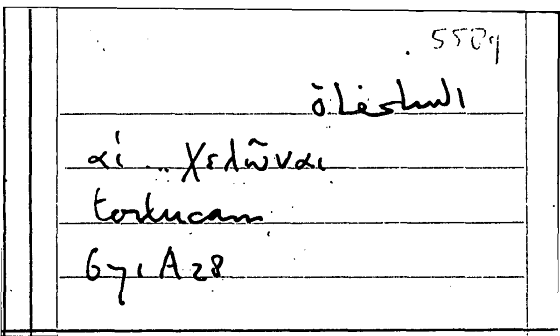 5509
السلحفاة
αἱ .. χελῶναι
tortucam
671 A 28